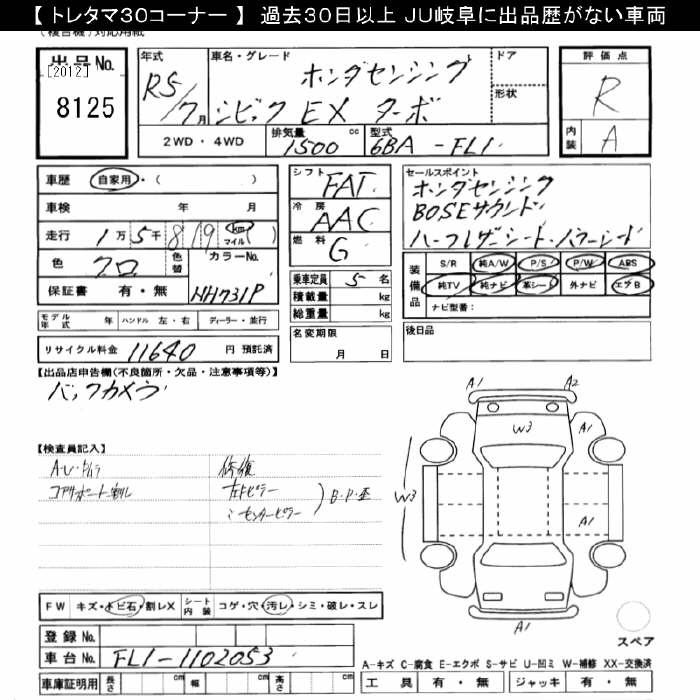 【 トレタマ30コーナー 】 過去30日以上 JU岐阜に出品歴がない車両
(複合機)対応用紙
出品No.
[2012]
8125
年式 R5/7月
車名・グレード ホンダセンシング
シビック EX ターボ
ドア
形状
2WD・4WD 排気量 1500 cc 型式 6BA-FL1
評価点
R
内装 A
車歴 自家用・( )
車検 年 月
走行 1万5千819 km マイル ( )
色 クロ 色替 カラーNo. NH731P
保証書 有・無
シフト FAT
冷房 AAC
燃料 G
乗車定員 5 名
積載量 kg
総重量 kg
セールスポイント
ホンダセンシング
BOSEサウンド
ハーフレザーシート・パワーシート
装備品 S/R 純A/W P/S P/W ABS
純TV 純ナビ 革シート 外ナビ エアB
ナビ型番:
モデル年式 年 ハンドル 左・右 ディーラー・並行
名変期限 月 日
後日品
リサイクル料金 11640 円 預託済
【出品店申告欄(不良箇所・欠品・注意事項等)】
バックカメラ
【検査員記入】
コアサポート
修復
左Fピラー
〃センターピラー
B・P・歪
A1 A2
W3 A1
W3 A1
A1
FW キズ・トビ石・割レX シート内装 コゲ・穴・汚レ・シミ・破レ・スレ
登録No.
車台No. FL1-1102053
車庫証明用 長さ cm 幅 cm 高さ cm
スペア
A-キズ C-腐食 E-エクボ S-サビ U-凹ミ W-補修 XX-交換済
工具 有・無 ジャッキ 有・無